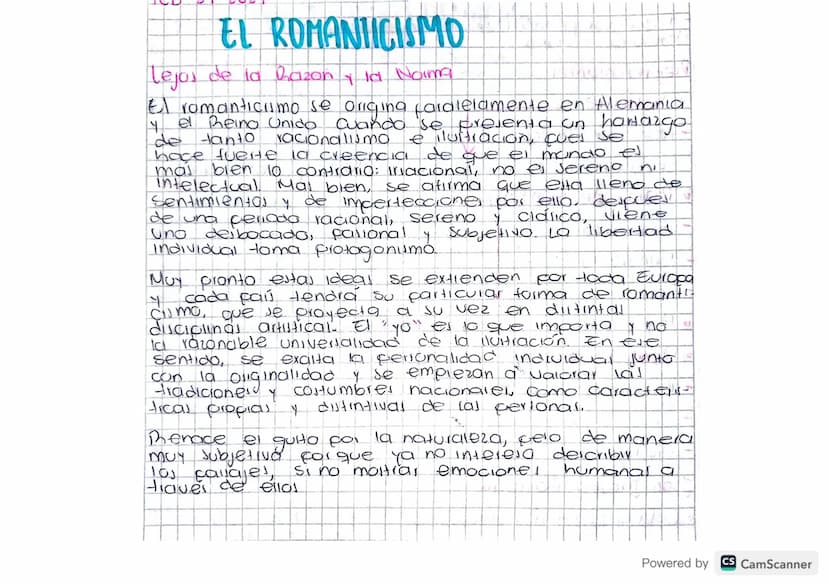 EL ROMANTICISMO
Lejos de la Razon y la Norma
El romanticismo se origina paralelamente en Alemania
y el Reino Unido cuando se presenta un hartazgo
de tanto racionalismo e ilustracion, pues se
hace fuerte la creencia de que el mundo es
mas bien lo contrario: irracional, no es sereno ni
intelectual. Mas bien, se afirma que esta lleno de
sentimientos y de imperfecciones por ello. despues
de una periodo racional, sereno y clásico, viene
uno desbocado, pasional y subjetivo. La libertad
individual toma protagonismo.
Muy pronto estas ideas se extienden por toda Europa
y cada país tendrá su particular forma de romanti-
cismo, que se proyecta a su vez en distintas
disciplinas artisticas. El "yo" es lo que importa y no
la razonable universalidad de la ilustración. En ese
sentido, se exalta la personalidad individual junto
con la originalidad y se empiezan a valorar las
tradiciones y costumbres nacionales, como caracteris-
ticas propias y distintivas de las personas.
Renace el gusto por la naturaleza, pero de manera
muy subjetiva porque ya no interesa describir
los paisajes, si no mostrar emociones humanas a
traves de ellos
Powered by CS CamScanner